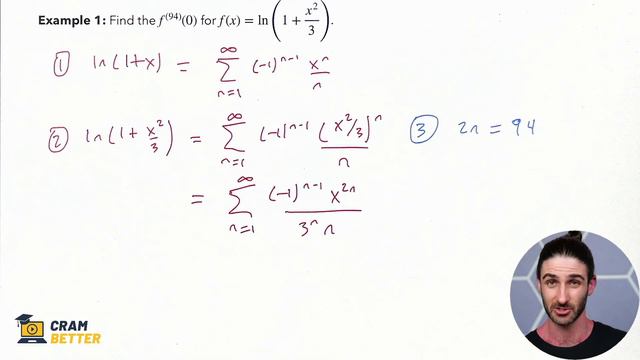 Example 1: Find the f^(94)(0) for f(x) = ln(1 + x²/3).
① ln(1+x) = ∑_{n=1}^{∞} (-1)^{n-1} x^n/n
② ln(1+x²/3) = ∑_{n=1}^{∞} (-1)^{n-1} (x²/3)^n/n ③ 2n = 94
= ∑_{n=1}^{∞} (-1)^{n-1} x^{2n}/3^n n
CRAM
BETTER